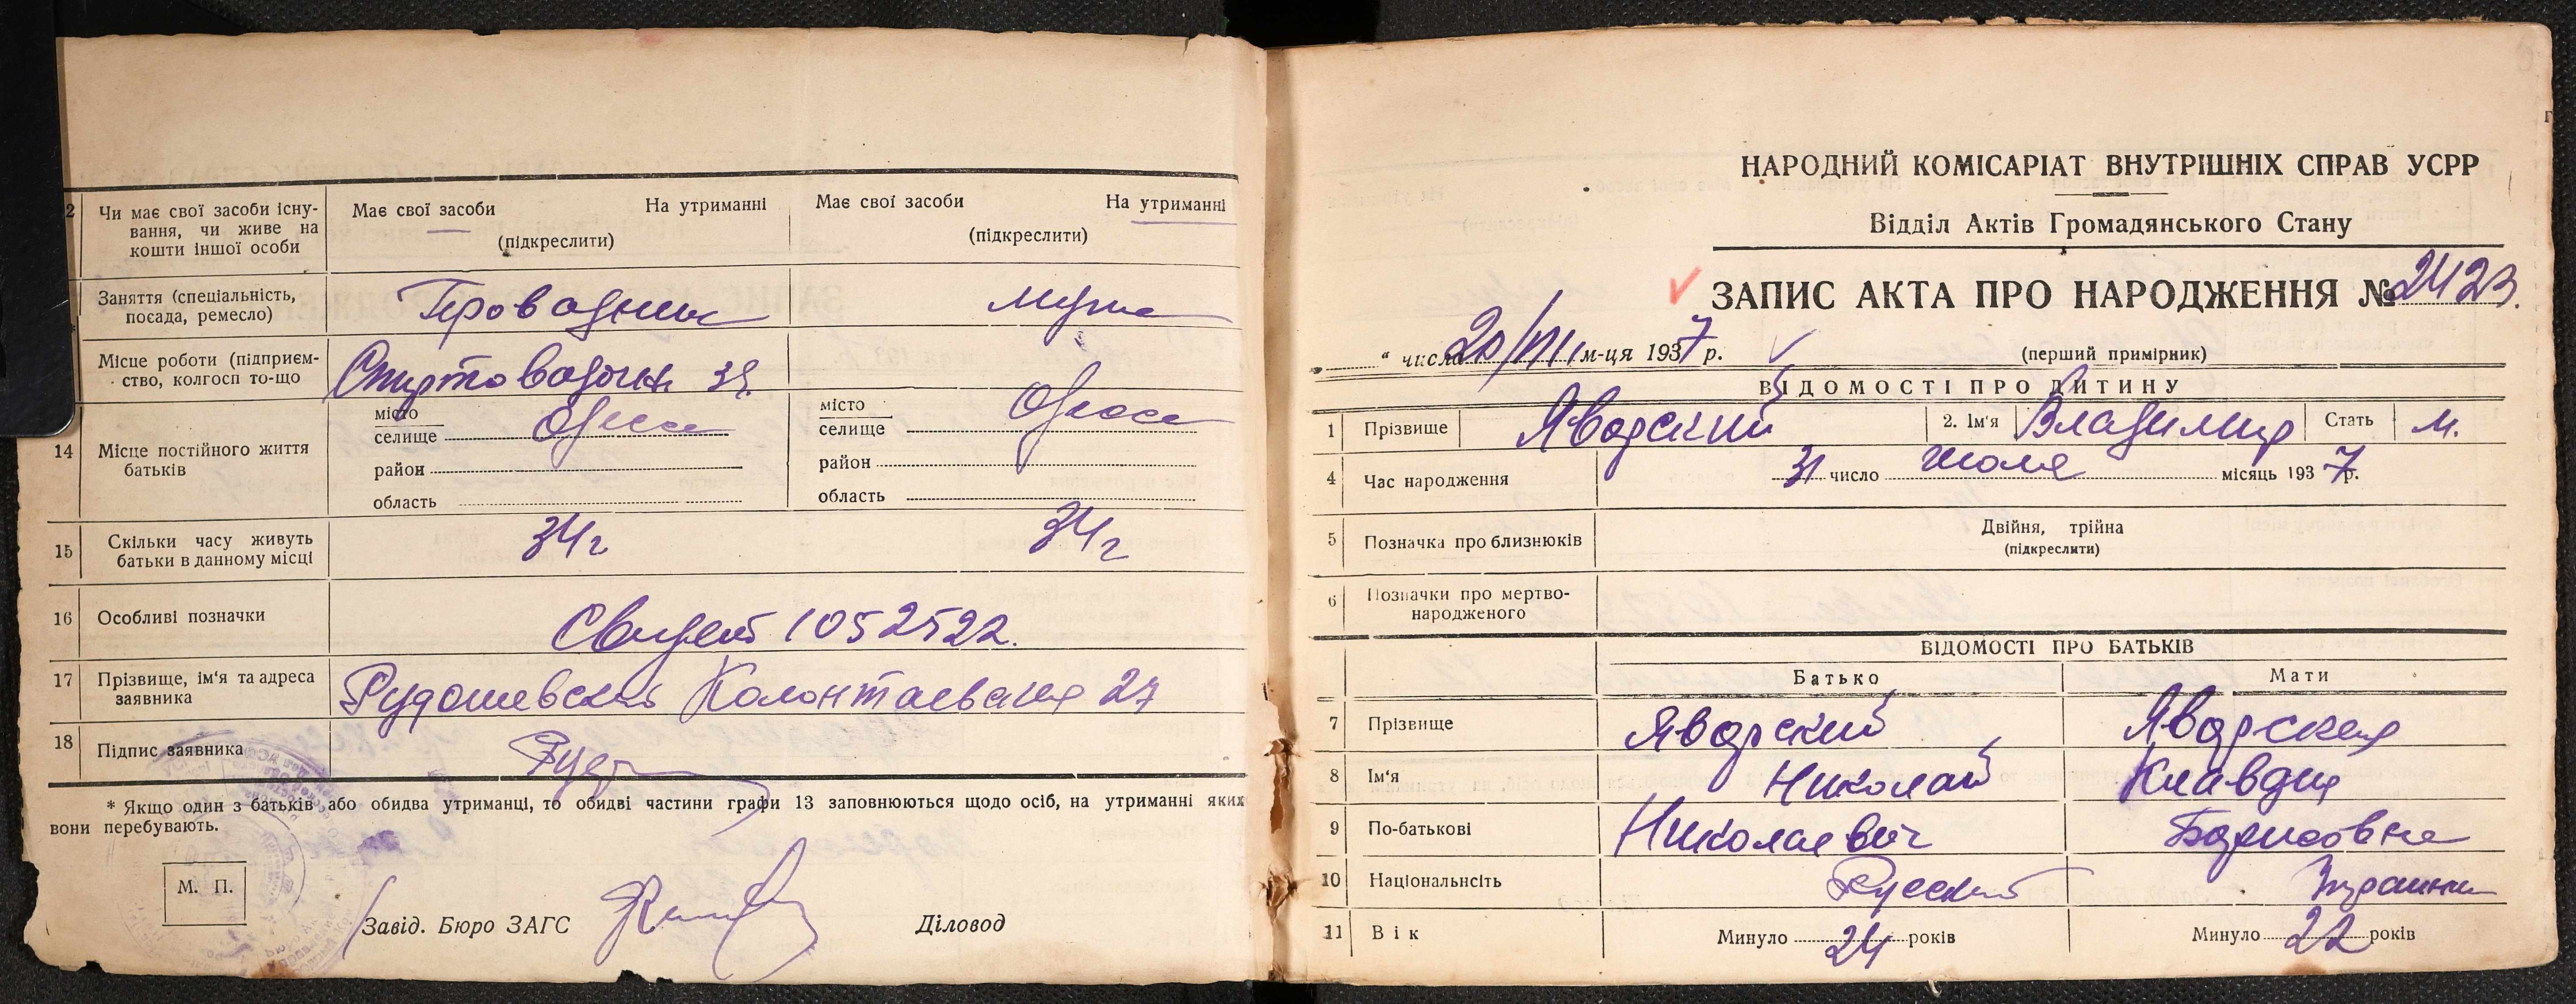 2 Чи має свої засоби існу-
вання, чи живе на
кошти іншої особи
Має свої засоби На утриманні
(підкреслити)
Має свої засоби На утриманні
(підкреслити)
Заняття (спеціальність,
посада, ремесло)
Проводник
мужа
Місце роботи (підприєм-
ство, колгосп то-що
14 Місце постійного життя
батьків
місто
селище Одесса
район
область
місто
селище Одесса
район
область
15 Скільки часу живуть
батьки в данному місці
34г 34г
16 Особливі позначки
Свидет 1052522.
17 Прізвище, ім'я та адреса
заявника
Колонтаевская 27
18 Підпис заявника
* Якщо один з батьків або обидва утриманці, то обидві частини графи 13 заповнюються щодо осіб, на утриманні яких
вони перебувають.
М. П.
Завід. Бюро ЗАГС
Діловод
НАРОДНИЙ КОМІСАРІАТ ВНУТРІШНІХ СПРАВ УСРР
Відділ Актів Громадянського Стану
ЗАПИС АКТА ПРО НАРОДЖЕННЯ № 2423.
" числа 20/VIII м-ця 1937 р. (перший примірник)
ВІДОМОСТІ ПРО ДИТИНУ
1 Прізвище Яворский 2. Ім'я Владимир Стать м.
4 Час народження 31 число июля місяць 1937р.
5 Позначка про близнюків
Двійня, трійна
(підкреслити)
6 Позначки про мертво-
народженого
ВІДОМОСТІ ПРО БАТЬКІВ
Батько Мати
7 Прізвище Яворский Яворская
8 Ім'я Николай Клавдия
9 По-батькові Николаевич Борисовна
10 Національність Русский Украинка
11 Вік Минуло 24 років Минуло 22 років